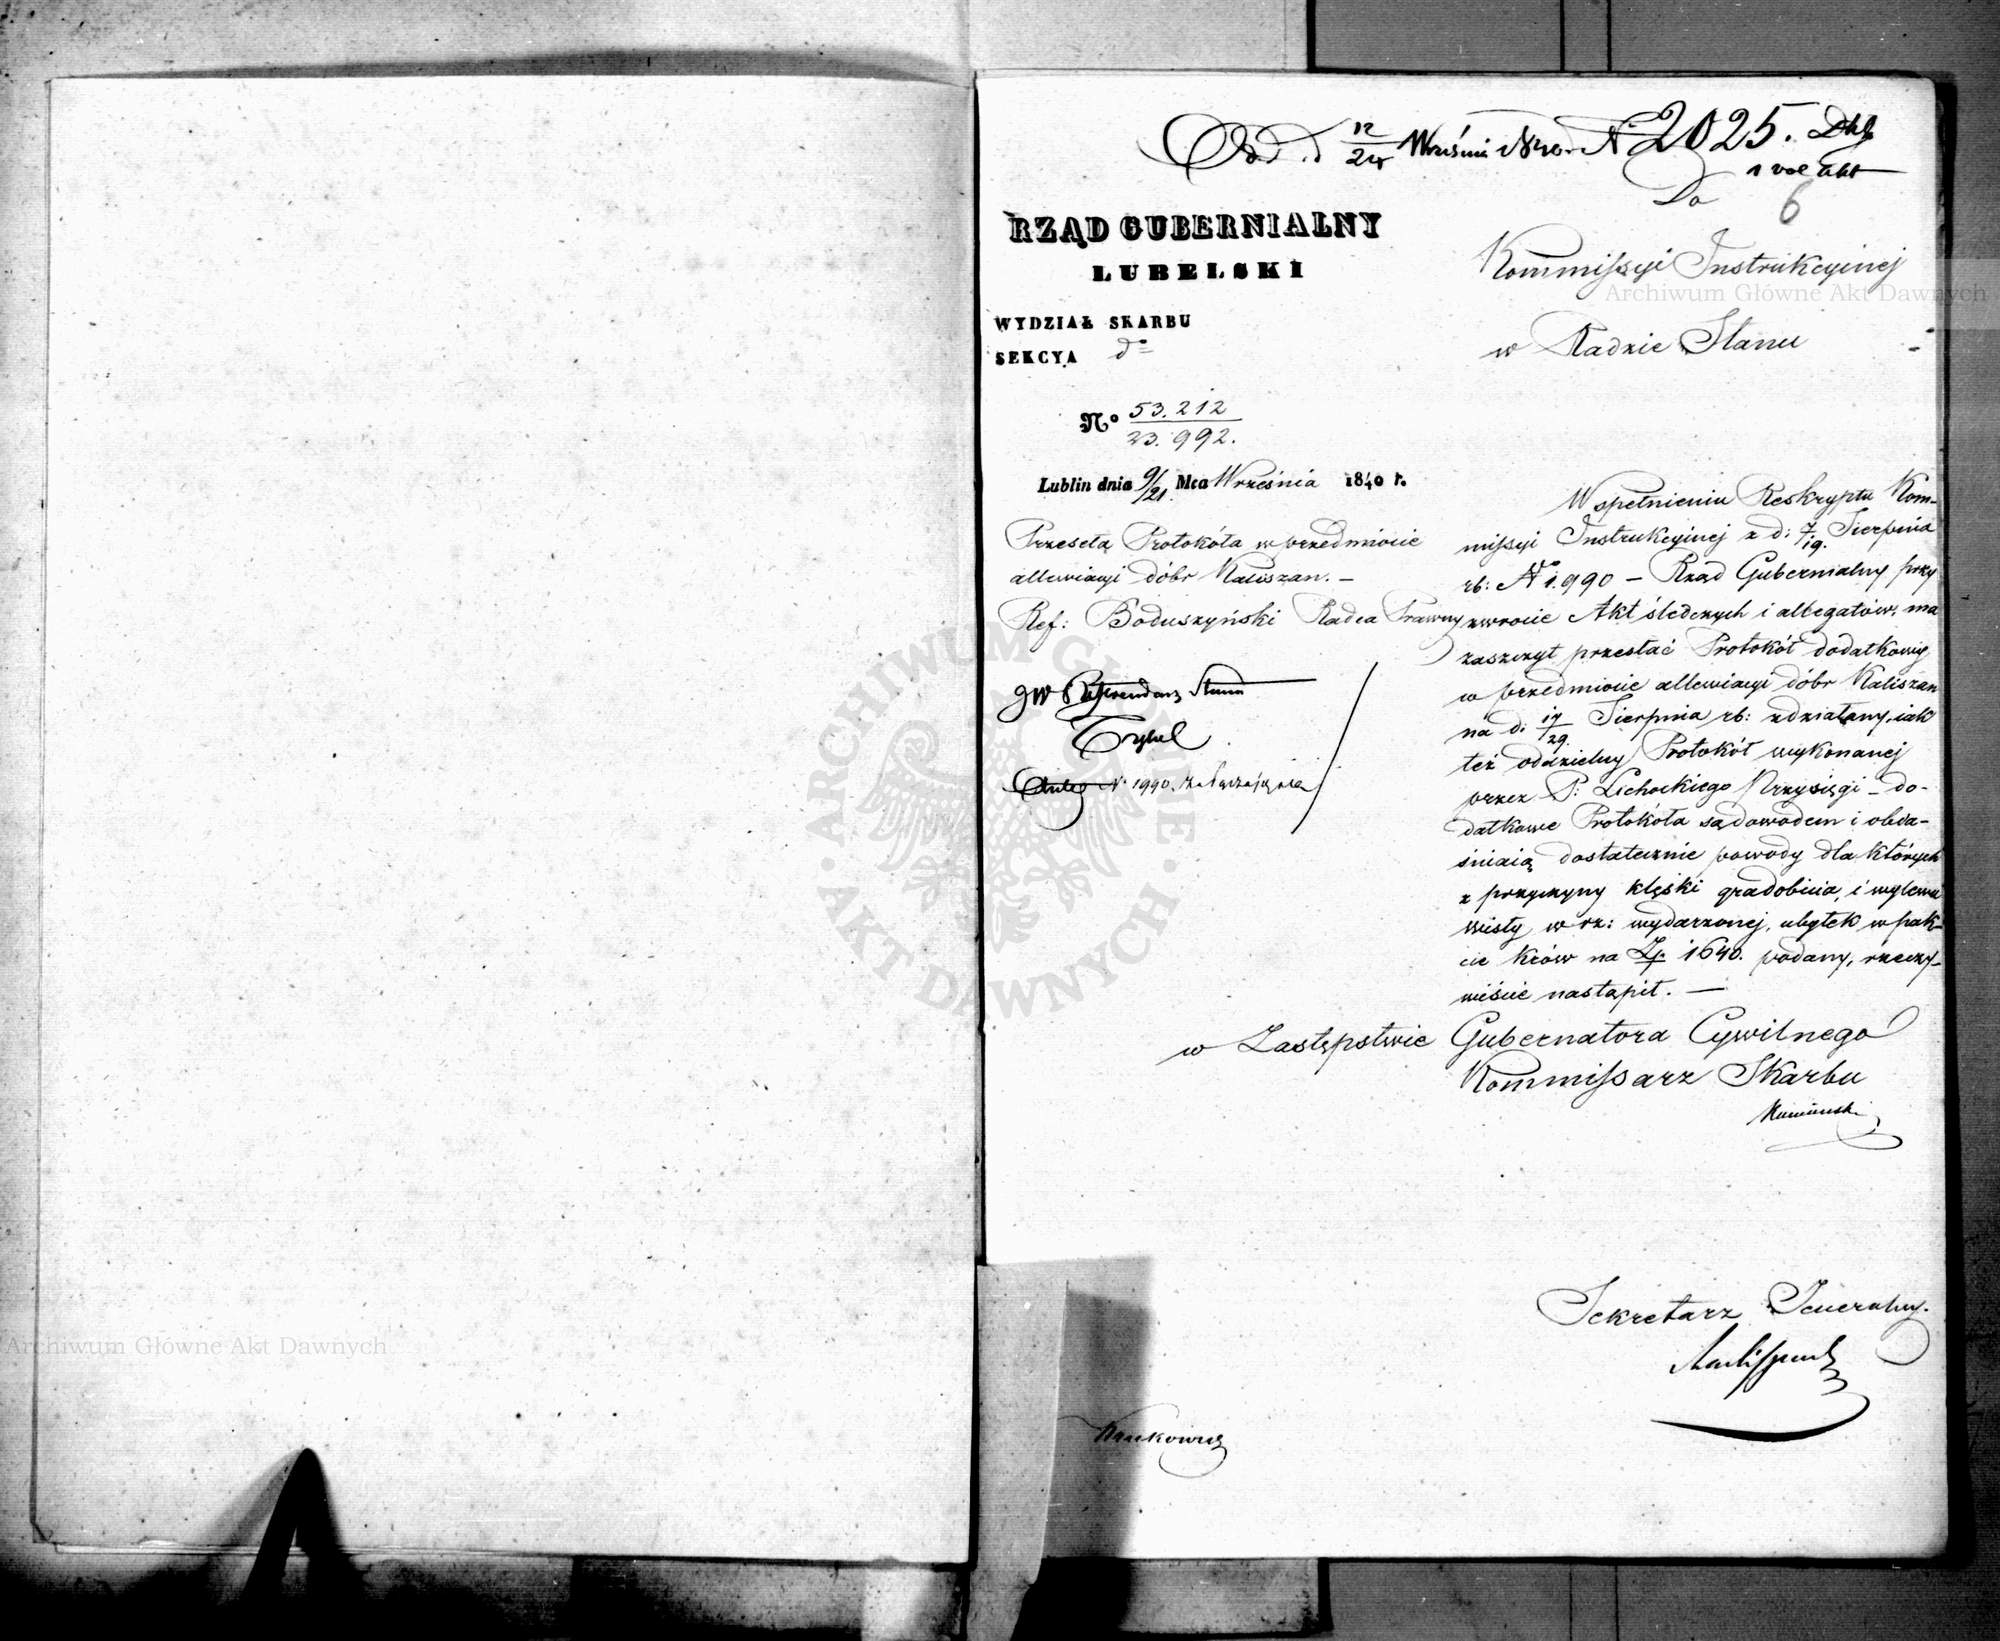 Odd. d 12/24 Września 1840. N. 2025.
1 vol akt
Do
6
RZĄD GUBERNIALNY
LUBELSKI
WYDZIAŁ SKARBU
SEKCYA do
No 53.212/23.992.
Lublin dnia 9/21 Mca Września 1840 r.
Przeseła Protokóła w przedmiocie
allewiacyi dóbr Kaliszan. —
Ref: Boduszyński Radca Prawny
JW Referendarz Stanu
N. 1990.
Kommissyi Instrukcyinej
w Radzie Stanu
W spełnieniu Reskryptu Kom-
missyi Instrukcyinej z d: 7/19. Sierpnia
rb: No 1.990 — Rząd Gubernialny przy
zwrocie Akt śledczych i allegatów, ma
zaszczyt przesłać Protokół dodatkowy
w przedmiocie allewiacyi dóbr Kaliszan
na d: 17/29 Sierpnia rb: zdziałany, iak
też oddzielny Protokół wykonanej
przez P: Lichockiego Przysięgi — do-
datkowe Protokóła są dowodem i obia-
śniaią dostatecznie powody dla których
z przyczyny klęski gradobicia, i wylewu
wisły w rz: wydarzonej, ubytek w pak-
cie krów na Zp. 1640. podany, rzeczy-
wiście nastąpił. —
w Zastępstwie Gubernatora Cywilnego
Kommissarz Skarbu
Kamiński
Sekretarz Jeneralny.
Archiwum Główne Akt Dawnych
Archiwum Główne Akt Dawnych
ARCHIWUM GŁÓWNE AKT DAWNYCH